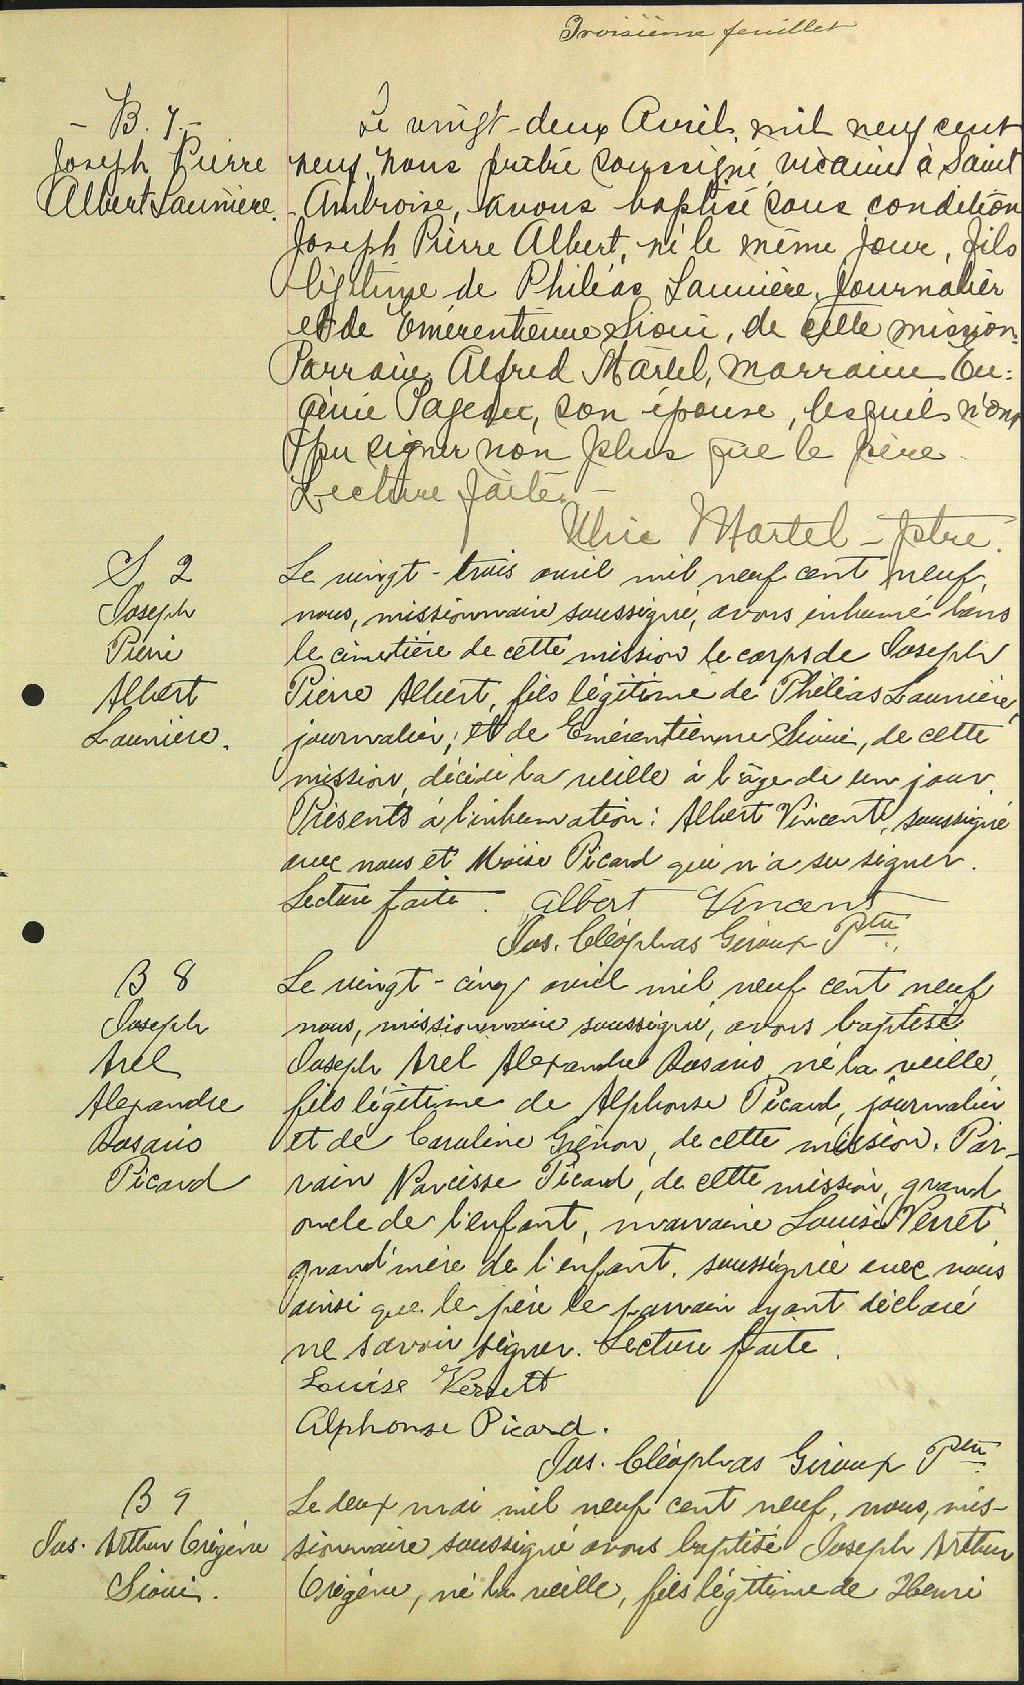 Troisième feuillet
- B. 7 -
Joseph Pierre
Albert Launière.
Le vingt-deux Avril, mil neuf cent
neuf, nous prêtre soussigné, vicaire à Saint
Ambroise, avons baptisé sous condition
Joseph Pierre Albert, né le même jour, fils
légitime de Philéas Launière, journalier
et de Emérentienne Sioui, de cette mission.
Parrain Alfred Martel, marraine Eu=
génie Pageau, son épouse, lesquels n'ont
pu signer non plus que le père.
Lecture faite. -
Ulric Martel - ptre.
S 2
Joseph
Pierre
Albert
Launière.
Le vingt-trois avril mil neuf cent neuf,
nous, missionnaire soussigné, avons inhumé dans
le cimetière de cette mission le corps de Joseph
Pierre Albert, fils légitime de Philéas Launière,
journalier, et de Emérentienne Sioui, de cette
mission, décédé la veille à l'âge de un jour.
Présents à l'inhumation: Albert Vincent, soussigné
avec nous et Moïse Picard qui n'a su signer.
Lecture faite. Albert Vincent
Jos. Cléophas Giroux Ptre.
B 8
Joseph
Arel
Alexandre
Rosario
Picard
Le vingt-cinq avril mil neuf cent neuf
nous, missionnaire soussigné, avons baptisé
Joseph Arel Alexandre Rosario, né la veille,
fils légitime de Alphonse Picard, journalier
et de Caroline Grénon, de cette mission. Par-
rain Narcisse Picard, de cette mission, grand
oncle de l'enfant, marraine Louise Verret
grand'mère de l'enfant, soussignée avec nous
ainsi que le père le parrain ayant déclaré
ne savoir signer. Lecture faite.
Louise Verrett
Alphonse Picard.
Jos. Cléophas Giroux Ptre
B 9
Jos. Arthur Origène
Sioui.
Le deux mai mil neuf cent neuf, nous, mis-
sionnaire soussigné avons baptisé Joseph Arthur
Origène, né la veille, fils légitime de Henri